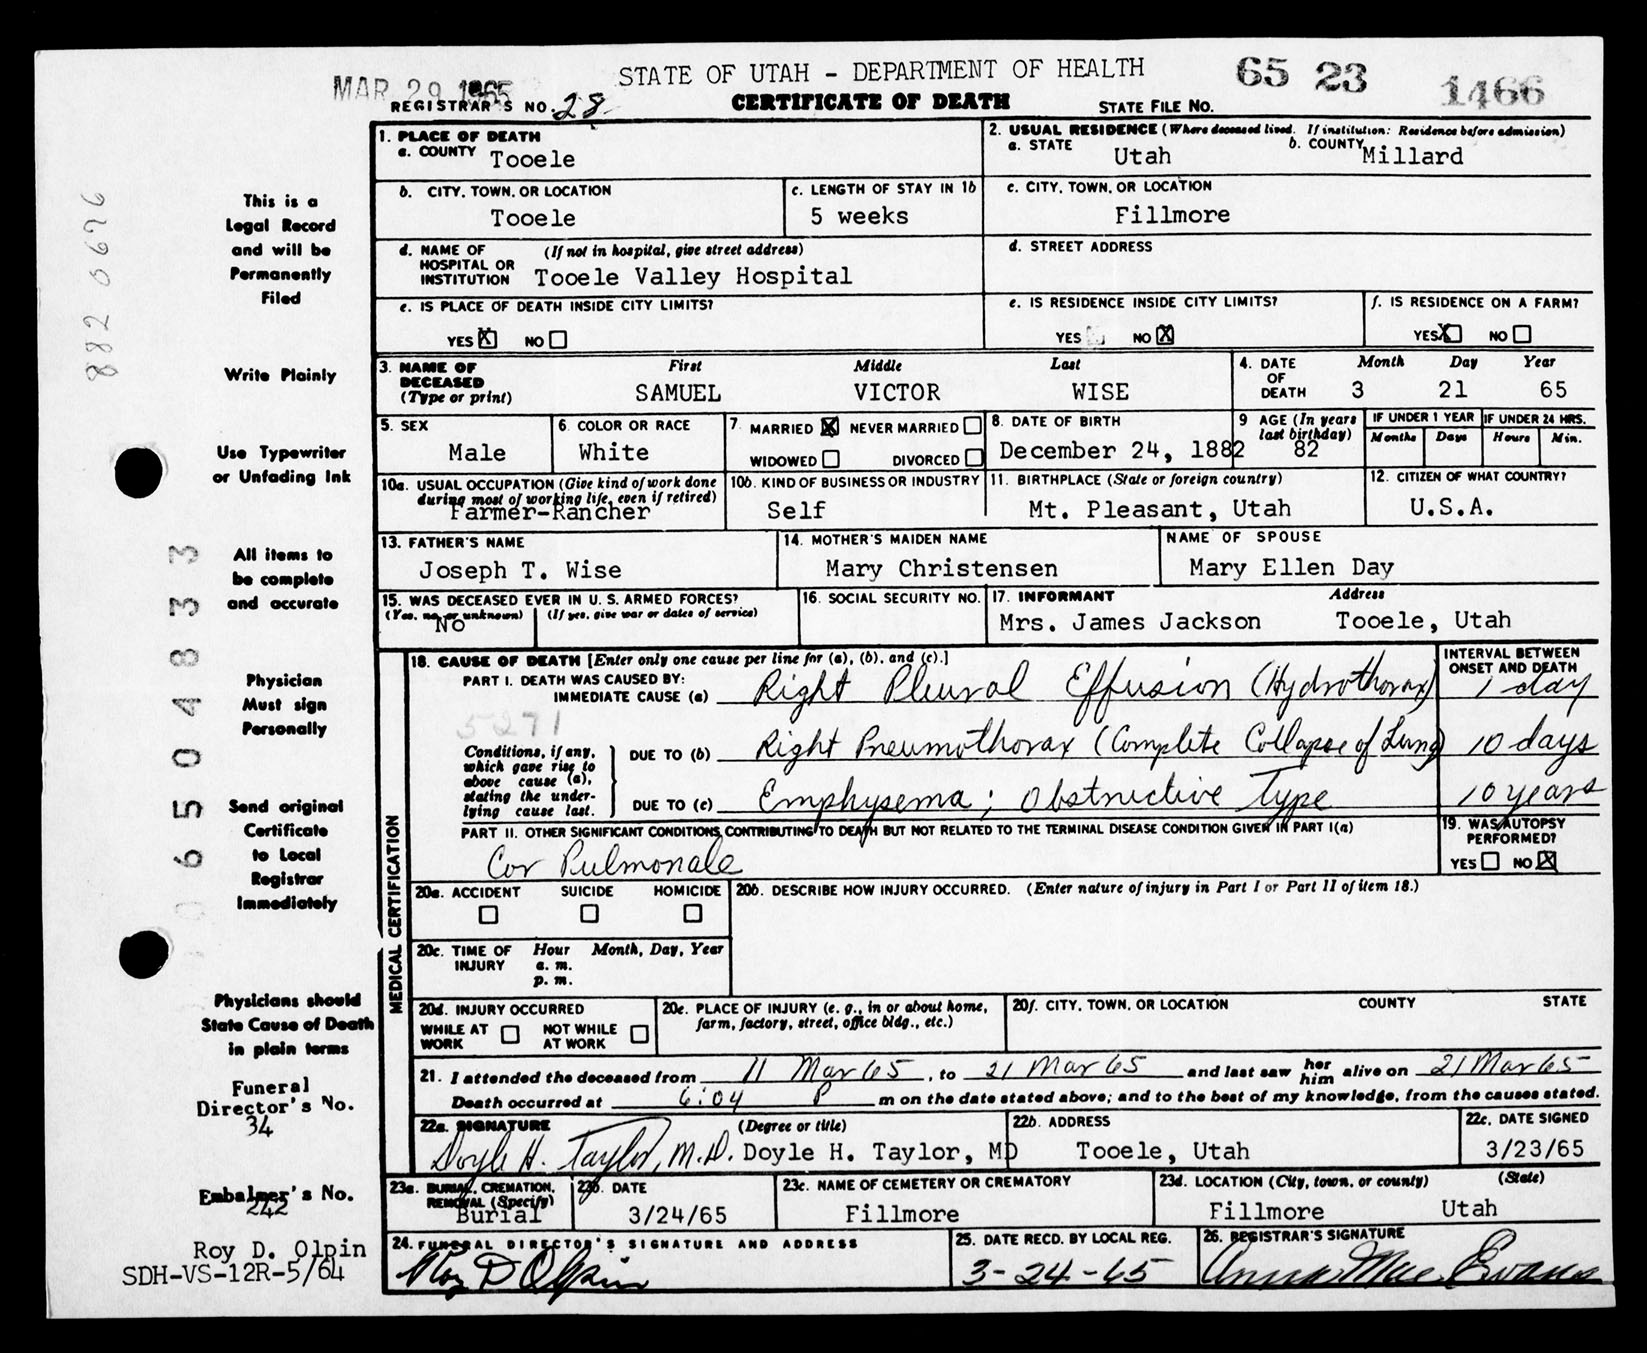 STATE OF UTAH - DEPARTMENT OF HEALTH
MAR 29 1965
65 23 1466
REGISTRAR'S NO. 28
CERTIFICATE OF DEATH
STATE FILE NO.
882 0676
0650 48 33
This is a
Legal Record
and will be
Permanently
Filed
Write Plainly
Use Typewriter
or Unfading Ink
All items to
be complete
and accurate
Physician
Must sign
Personally
Send original
Certificate
to Local
Registrar
Immediately
Physicians should
State Cause of Death
in plain terms
Funeral
Director's No.
34
Embalmer's No.
242
Roy D. Olpin
SDH-VS-12R-5/64
1. PLACE OF DEATH
a. COUNTY Tooele
2. USUAL RESIDENCE (Where deceased lived. If institution: Residence before admission)
a. STATE Utah b. COUNTY Millard
b. CITY, TOWN, OR LOCATION
Tooele
c. LENGTH OF STAY IN 1b
5 weeks
c. CITY, TOWN, OR LOCATION
Fillmore
d. NAME OF HOSPITAL OR INSTITUTION (If not in hospital, give street address)
Tooele Valley Hospital
d. STREET ADDRESS
e. IS PLACE OF DEATH INSIDE CITY LIMITS?
YES X NO
e. IS RESIDENCE INSIDE CITY LIMITS?
YES NO X
f. IS RESIDENCE ON A FARM?
YES X NO
3. NAME OF DECEASED (Type or print)
First Middle Last
SAMUEL VICTOR WISE
4. DATE OF DEATH
Month Day Year
3 21 65
5. SEX
Male
6. COLOR OR RACE
White
7. MARRIED X NEVER MARRIED
WIDOWED DIVORCED
8. DATE OF BIRTH
December 24, 1882
9 AGE (In years last birthday)
82
IF UNDER 1 YEAR
Months Days
IF UNDER 24 HRS.
Hours Min.
10a. USUAL OCCUPATION (Give kind of work done during most of working life, even if retired)
Farmer-Rancher
10b. KIND OF BUSINESS OR INDUSTRY
Self
11. BIRTHPLACE (State or foreign country)
Mt. Pleasant, Utah
12. CITIZEN OF WHAT COUNTRY?
U.S.A.
13. FATHER'S NAME
Joseph T. Wise
14. MOTHER'S MAIDEN NAME
Mary Christensen
NAME OF SPOUSE
Mary Ellen Day
15. WAS DECEASED EVER IN U. S. ARMED FORCES?
(Yes, no, or unknown) (If yes, give war or dates of service)
No
16. SOCIAL SECURITY NO.
17. INFORMANT Address
Mrs. James Jackson Tooele, Utah
MEDICAL CERTIFICATION
18. CAUSE OF DEATH [Enter only one cause per line for (a), (b), and (c).]
INTERVAL BETWEEN ONSET AND DEATH
PART I. DEATH WAS CAUSED BY:
IMMEDIATE CAUSE (a) Right Pleural Effusion (Hydrothorax) 1 day
5271
Conditions, if any, which gave rise to above cause (a), stating the underlying cause last.
DUE TO (b) Right Pneumothorax (Complete Collapse of Lung) 10 days
DUE TO (c) Emphysema; Obstructive Type 10 years
PART II. OTHER SIGNIFICANT CONDITIONS CONTRIBUTING TO DEATH BUT NOT RELATED TO THE TERMINAL DISEASE CONDITION GIVEN IN PART I(a)
Cor Pulmonale
19. WAS AUTOPSY PERFORMED?
YES NO X
20a. ACCIDENT SUICIDE HOMICIDE
20b. DESCRIBE HOW INJURY OCCURRED. (Enter nature of injury in Part I or Part II of item 18.)
20c. TIME OF INJURY Hour Month, Day, Year
a. m.
p. m.
20d. INJURY OCCURRED
WHILE AT WORK NOT WHILE AT WORK
20e. PLACE OF INJURY (e. g., in or about home, farm, factory, street, office bldg., etc.)
20f. CITY, TOWN, OR LOCATION COUNTY STATE
21. I attended the deceased from 11 Mar 65, to 21 Mar 65 and last saw her him alive on 21 Mar 65
Death occurred at 6:04 P m on the date stated above; and to the best of my knowledge, from the causes stated.
22a. SIGNATURE (Degree or title)
Doyle H. Taylor, M.D. Doyle H. Taylor, MD
22b. ADDRESS
Tooele, Utah
22c. DATE SIGNED
3/23/65
23a. BURIAL, CREMATION, REMOVAL (Specify)
Burial
23b. DATE
3/24/65
23c. NAME OF CEMETERY OR CREMATORY
Fillmore
23d. LOCATION (City, town, or county) (State)
Fillmore Utah
24. FUNERAL DIRECTOR'S SIGNATURE AND ADDRESS
Roy D Olpin
25. DATE RECD. BY LOCAL REG.
3-24-65
26. REGISTRAR'S SIGNATURE
Anna Mae Evans